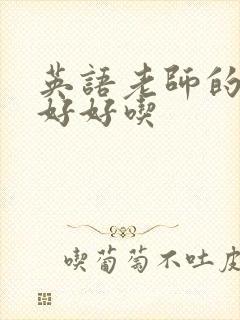 英語老師的
好好喫
喫葡萄不吐皮